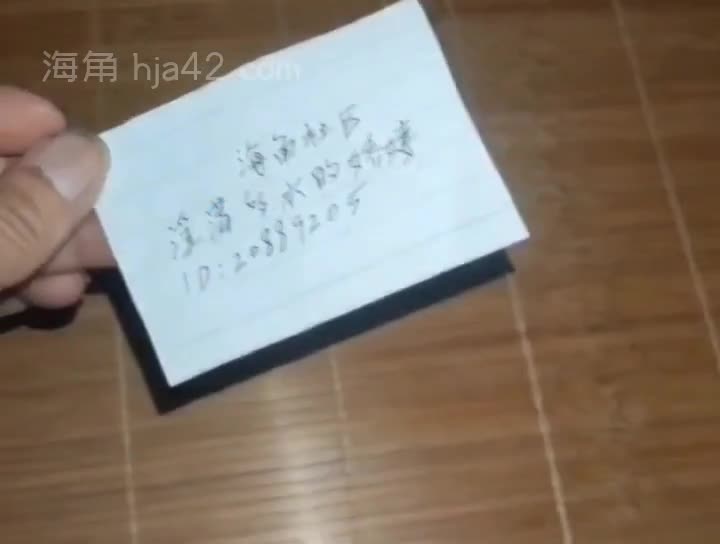 海角 hja42.com
海角社区
淫荡的水的
ID:20889205